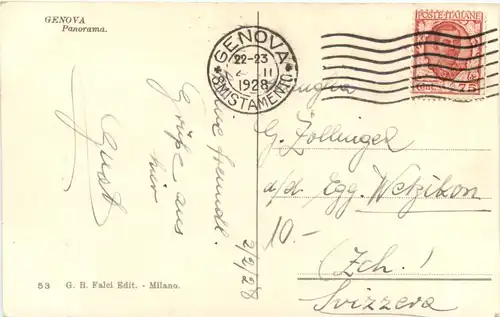 GENOVA
Panorama.
GENOVA
22-23
2 II
1928
SMISTAMENTO
POSTE ITALIANE
75
freundl.
Grüße aus
hier
2/2/28
G. Zollinger
a/d. Egg. Wetzikon
10.-
(Zch.)
Svizzera
53 G. B. Falci Edit. - Milano.